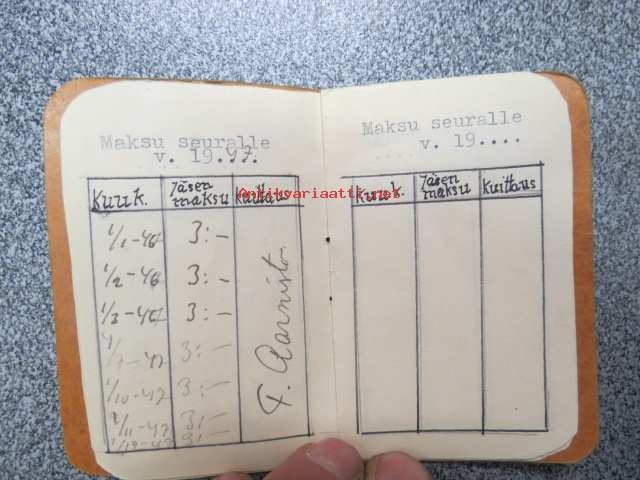 Maksu seuralle
v. 19.47.
Kuuk. Jäsen maksu Kuittaus
1/1-47 3:-
1/2-46 3:-
1/3-47 3:-
1/9-47 3:-
1/10-47 3:-
1/11-47 3:-
1/12-47 3:-
F. Aarnisto
Maksu seuralle
v. 19....
Kuuk. Jäsen maksu Kuittaus
Antikvariaatti.net